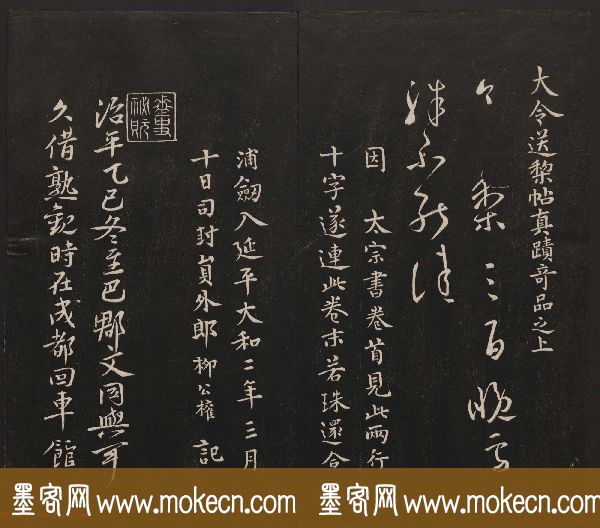 大令送棃帖真蹟奇品之上
今梨三百晚雪
殊不能佳
因太宗書卷首見此兩行
十字遂連此卷末若珠還合
浦劒入延平大和二年三月
十日司封貟外郎柳公權記
治平乙巳冬至巴郡文同與可
久借熟觀時在成都回車館
墨客网 www.mokecn.com 墨客网 www.mokecn.com